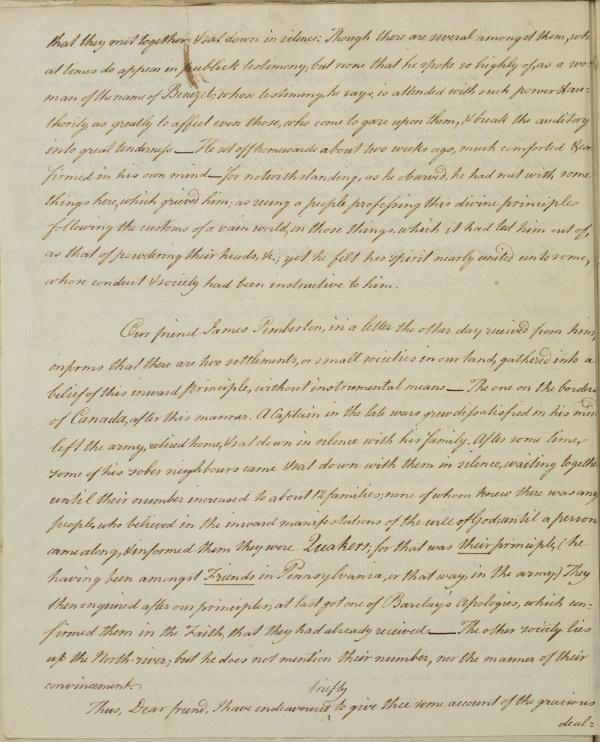 that they met together & sat down in silence: Though there are several amongst them, who
at times do appear in publick testimony, but none that he spoke so highly of, as a wo-
man of the name of Benezet; whose testimony, he says, is attended with such power & au-
thority, as greatly to affect even those, who come to gaze upon them, & break the auditory
into great tenderness — He set off homewards about two weeks ago, much comforted & con
firmed in his own mind — for notwithstanding, as he observed, he had met with some
things here, which grieved him; as seeing a people professing this divine principle
following the customs of a vain world, in those things, which it had led him out of,
as that of powdering their heads, &c; yet he felt his spirit nearly united unto some,
whose conduct & society had been instructive to him.
Our friend James Pemberton, in a letter the other day received from him,
informs that there are two settlements, or small societies in our land, gathered into a
belief of this inward principle, without instrumental means — The one on the borders
of Canada, after this manner. A Captain in the late wars grew dissatisfied in his mind
left the army, retired home, & sat down in silence with his family. After some time,
some of his sober neighbours came & sat down with them in silence, waiting together
until their number increased to about 12 families; none of whom knew there was any
people, who believed in the inward manifestations of the will of God, until a person
came along, & informed them they were Quakers; for that was their principle, (he
having been amongst Friends in Pennsylvania, or that way, in the army;) They
then enquired after our principles, at last got one of Barclay's Apologies, which con-
firmed them in the Faith, that they had already received — The other society lies
up the North-river; but he does not mention their number, nor the manner of their
convincement.
Thus, Dear friend, I have endeavoured briefly to give thee some account of the gracious
deal=